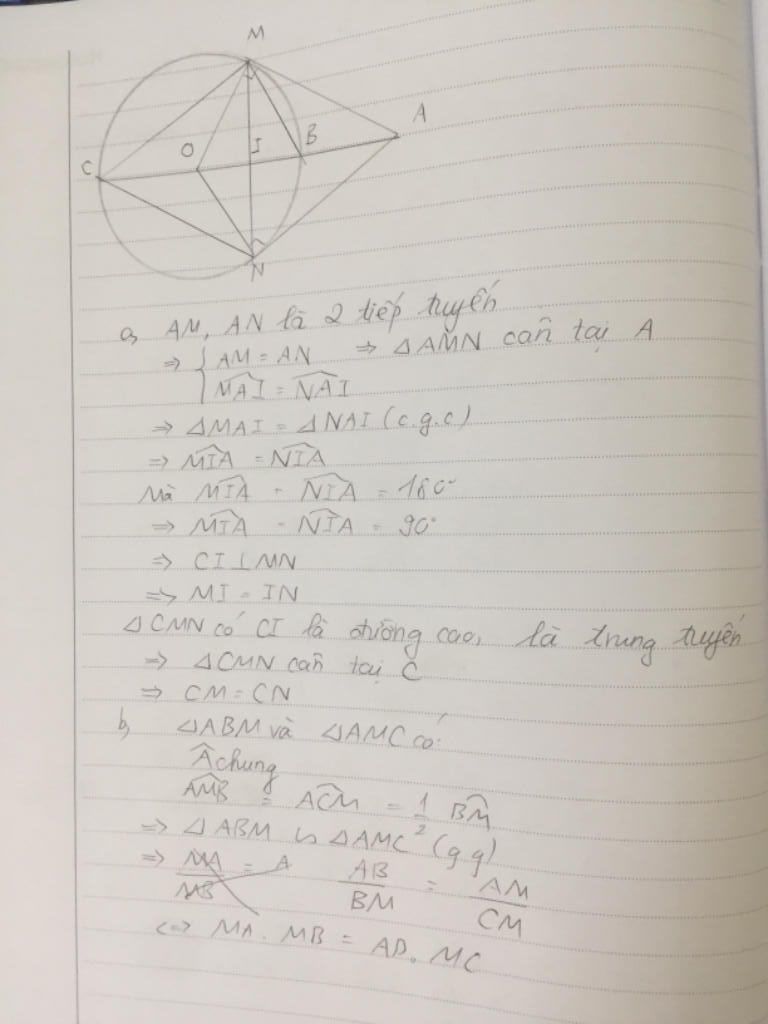 M
A
B
I
O
C
N
a, AM, AN là 2 tiếp tuyến
⇒ { AM = AN ⇒ △AMN cân tại A
{ \widehat{MAI} = \widehat{NAI}
⇒ △MAI = △NAI (c.g.c)
⇒ \widehat{MIA} = \widehat{NIA}
Mà \widehat{MIA} - \widehat{NIA} = 180°
⇒ \widehat{MIA} - \widehat{NIA} = 90°
⇒ CI ⊥ MN
⇒ MI = IN
△CMN có CI là đường cao, là trung tuyến
⇒ △CMN cân tại C
⇒ CM = CN
b, △ABM và △AMC có:
\widehat{A} chung
\widehat{AMB} = \widehat{ACM} = \frac{1}{2} \widehat{BM}
⇒ △ABM ∽ △AMC (g g)
⇒ \frac{AB}{BM} = \frac{AM}{CM}
<=> MA. MB = AB. MC